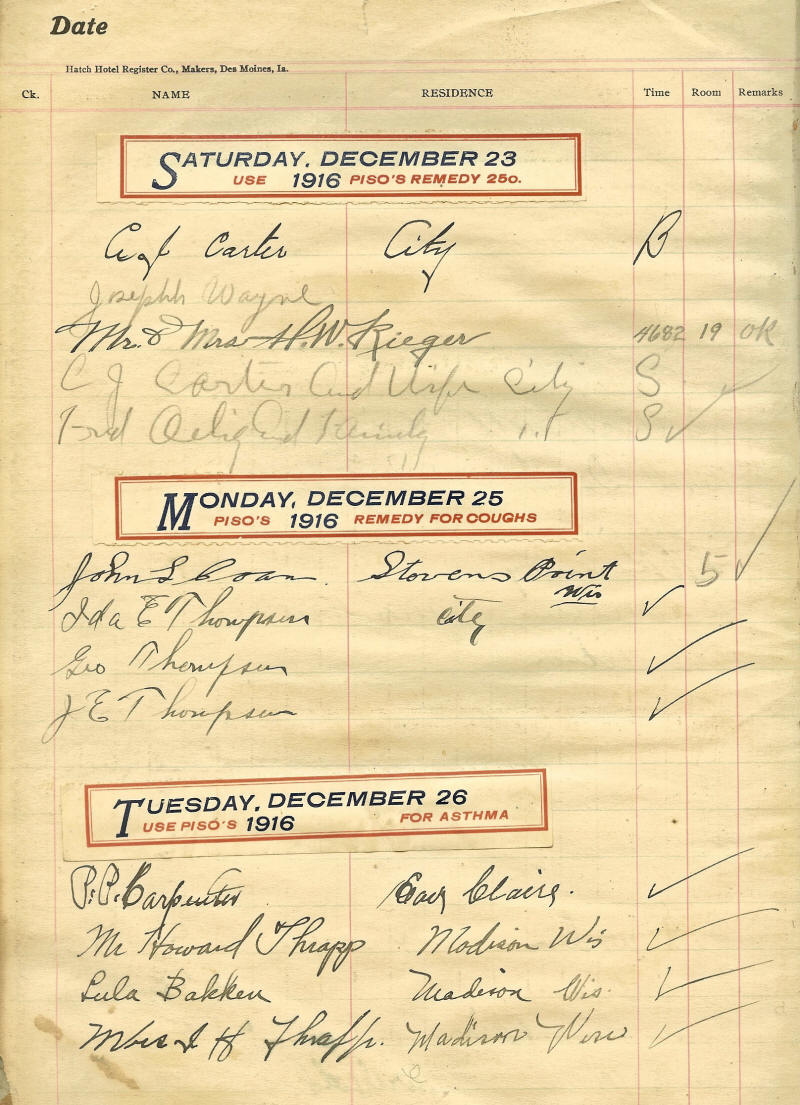 Date
Hatch Hotel Register Co., Makers, Des Moines, Ia.
Ck. NAME RESIDENCE Time Room Remarks
SATURDAY, DECEMBER 23
USE 1916 PISO'S REMEDY 25c.
C J Carter City B
Josephh Wayne
Mr. & Mrs H. W. Rieger 4682 19 OK
C J Carter and Wife City S ✓
and Family S ✓
MONDAY, DECEMBER 25
PISO'S 1916 REMEDY FOR COUGHS
John S Coan. Stevens Point Wis 5 ✓
Ida E Thompson City ✓
Geo Thompson ✓
J E Thompson ✓
TUESDAY, DECEMBER 26
USE PISO'S 1916 FOR ASTHMA
P. P. Carpenter Eau Claire. ✓
Mr Howard Thrapp Madison Wis ✓
Lula Bakken Madison Wis. ✓
Mrs I H Thrapp. Madison Wisc ✓